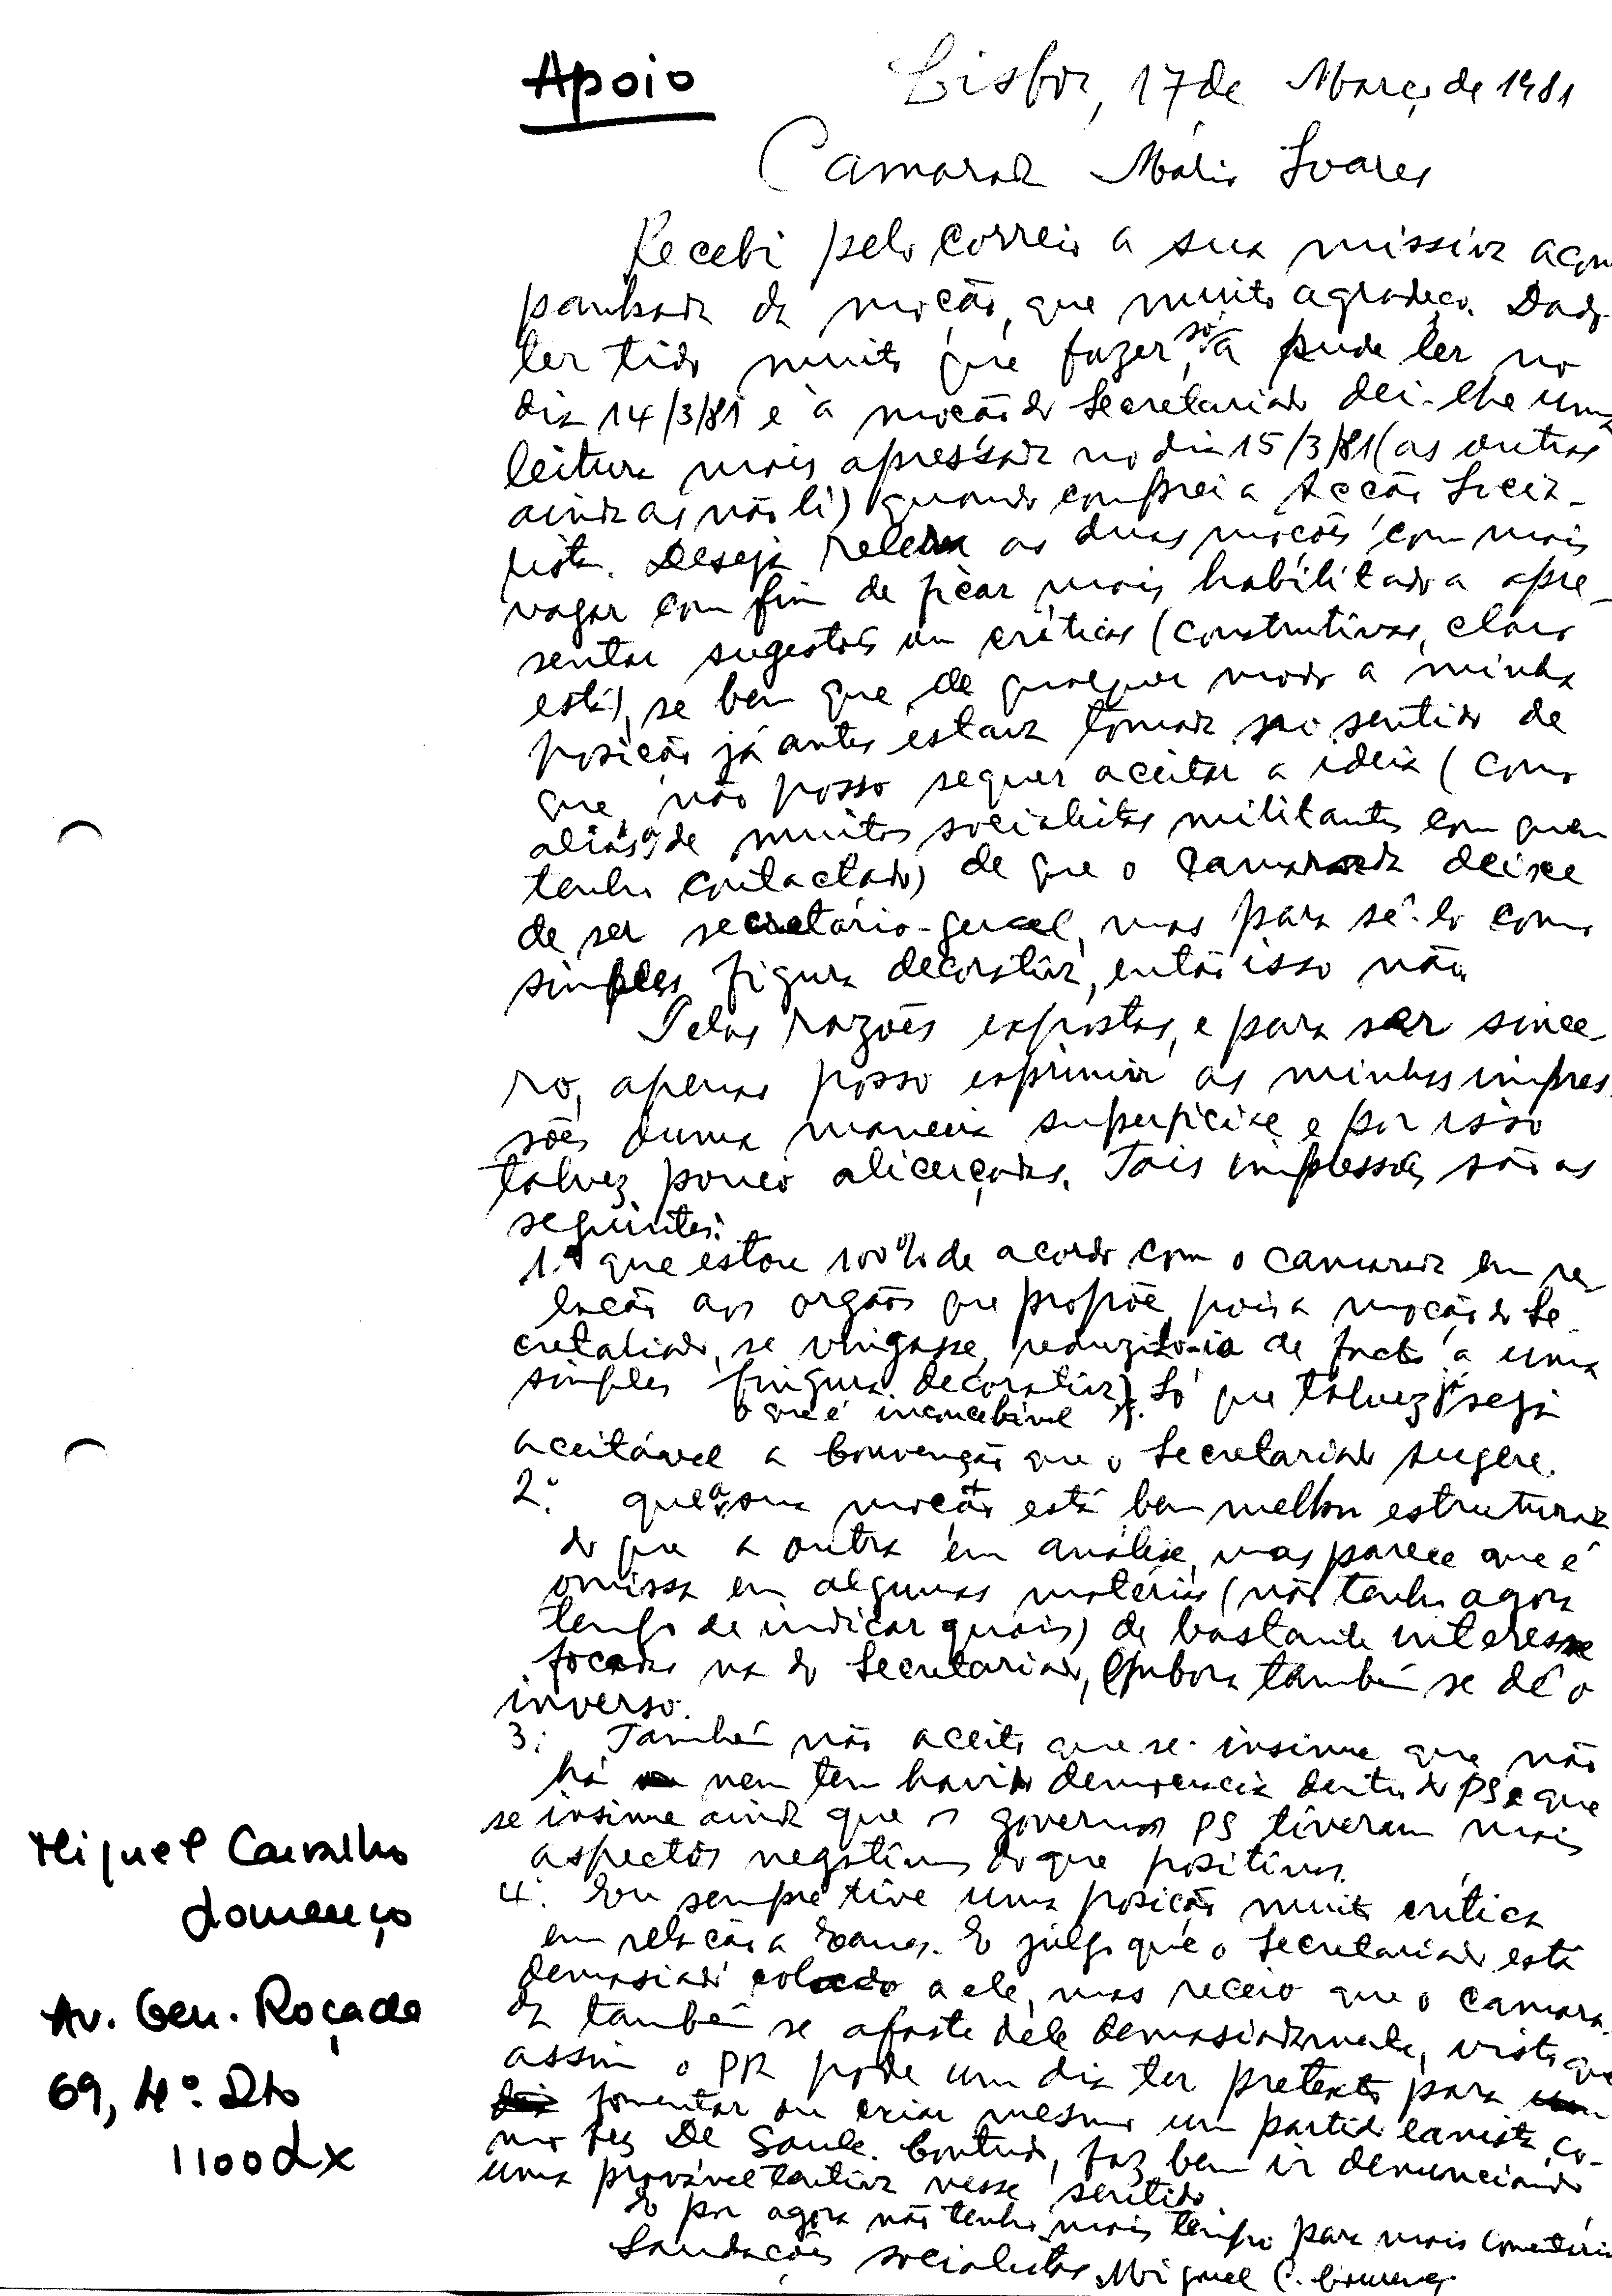 Apoio
Lisboa, 17 de Março de 1981
Camarada Mário Soares
Recebi pelo correio a sua missiva acom
panhada da moção, que muito agradeço. Dado
ter tido muito que fazer, só a pude ler no
dia 14/3/81 e à moção do Secretariado dei-lhe uma
leitura mais apressada no dia 15/3/81 (as outras
ainda as não li) quando comprei a Acção Socia-
lista. Desejo reler as duas moções com mais
vagar com fim de ficar mais habilitado a apre-
sentar sugestões ou críticas (construtivas, claro
está), se bem que, de qualquer modo a minha
posição já antes estava tomada no sentido de
que não posso sequer aceitar a ideia (como
aliás a de muitos socialistas militantes com quem
tenho contactado) de que o camarada deixe
de ser secretário-geral, mas para sê-lo como
simples figura decorativa, então isso não.
Pelas razões expostas, e para ser since-
ro, apenas posso exprimir as minhas impres-
sões duma maneira superficial e por isso
talvez pouco alicerçadas. Tais impressões são as
seguintes:
1.º que estou 100% de acordo com o camarada em re-
lação aos orgãos que propõe, pois a moção do Se-
cretariado, se vingasse, reduzi-lo-ia de facto a uma
simples figura decorativa,
o que é inconcebível. Só que talvez já seja
aceitável a Convenção que o Secretariado sugere.
2.º que a sua moção está bem melhor estruturada
do que a outra em análise, mas parece que é
omissa em algumas matérias (não tenho agora
tempo de indicar quais) de bastante interesse
focadas na do Secretariado, embora também se dê o
inverso.
3.º Também não aceito que se insinue que não
há nem tem havido democracia dentro do PS e que
se insinue ainda que os governos PS tiveram mais
aspectos negativos do que positivos.
4.º Eu sempre tive uma posição muito crítica
em relação a Eanes. E julgo que o Secretariado está
demasiado colado a ele, mas receio que o camara-
da também se afaste dele demasiadamente, visto que
assim o PR pode um dia ter pretexto para
fomentar ou criar mesmo um partido eanista, co-
mo fez De Gaule. Contudo, faz bem ir denunciando
uma provável tentativa nesse sentido.
E por agora não tenho mais tempo para mais comentários
Saudações socialistas Miguel C. Lourenço
Miguel Carvalho
Lourenço
Av. Gen. Roçadas
69, 4.º Dto
1100 Lx